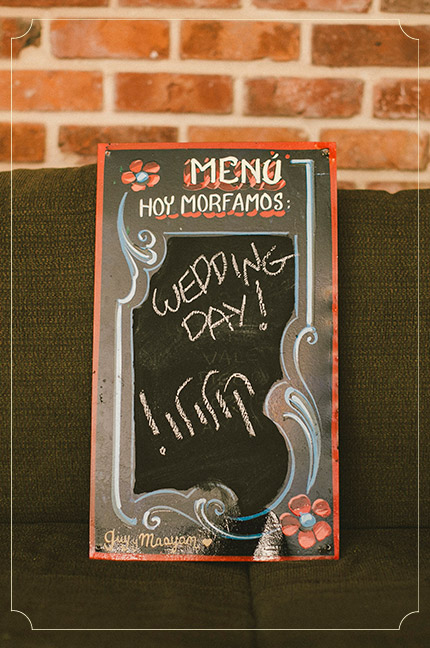 MENÚ
HOY MORFAMOS:
WEDDING
DAY!
קולולו!
Guy y Maayan